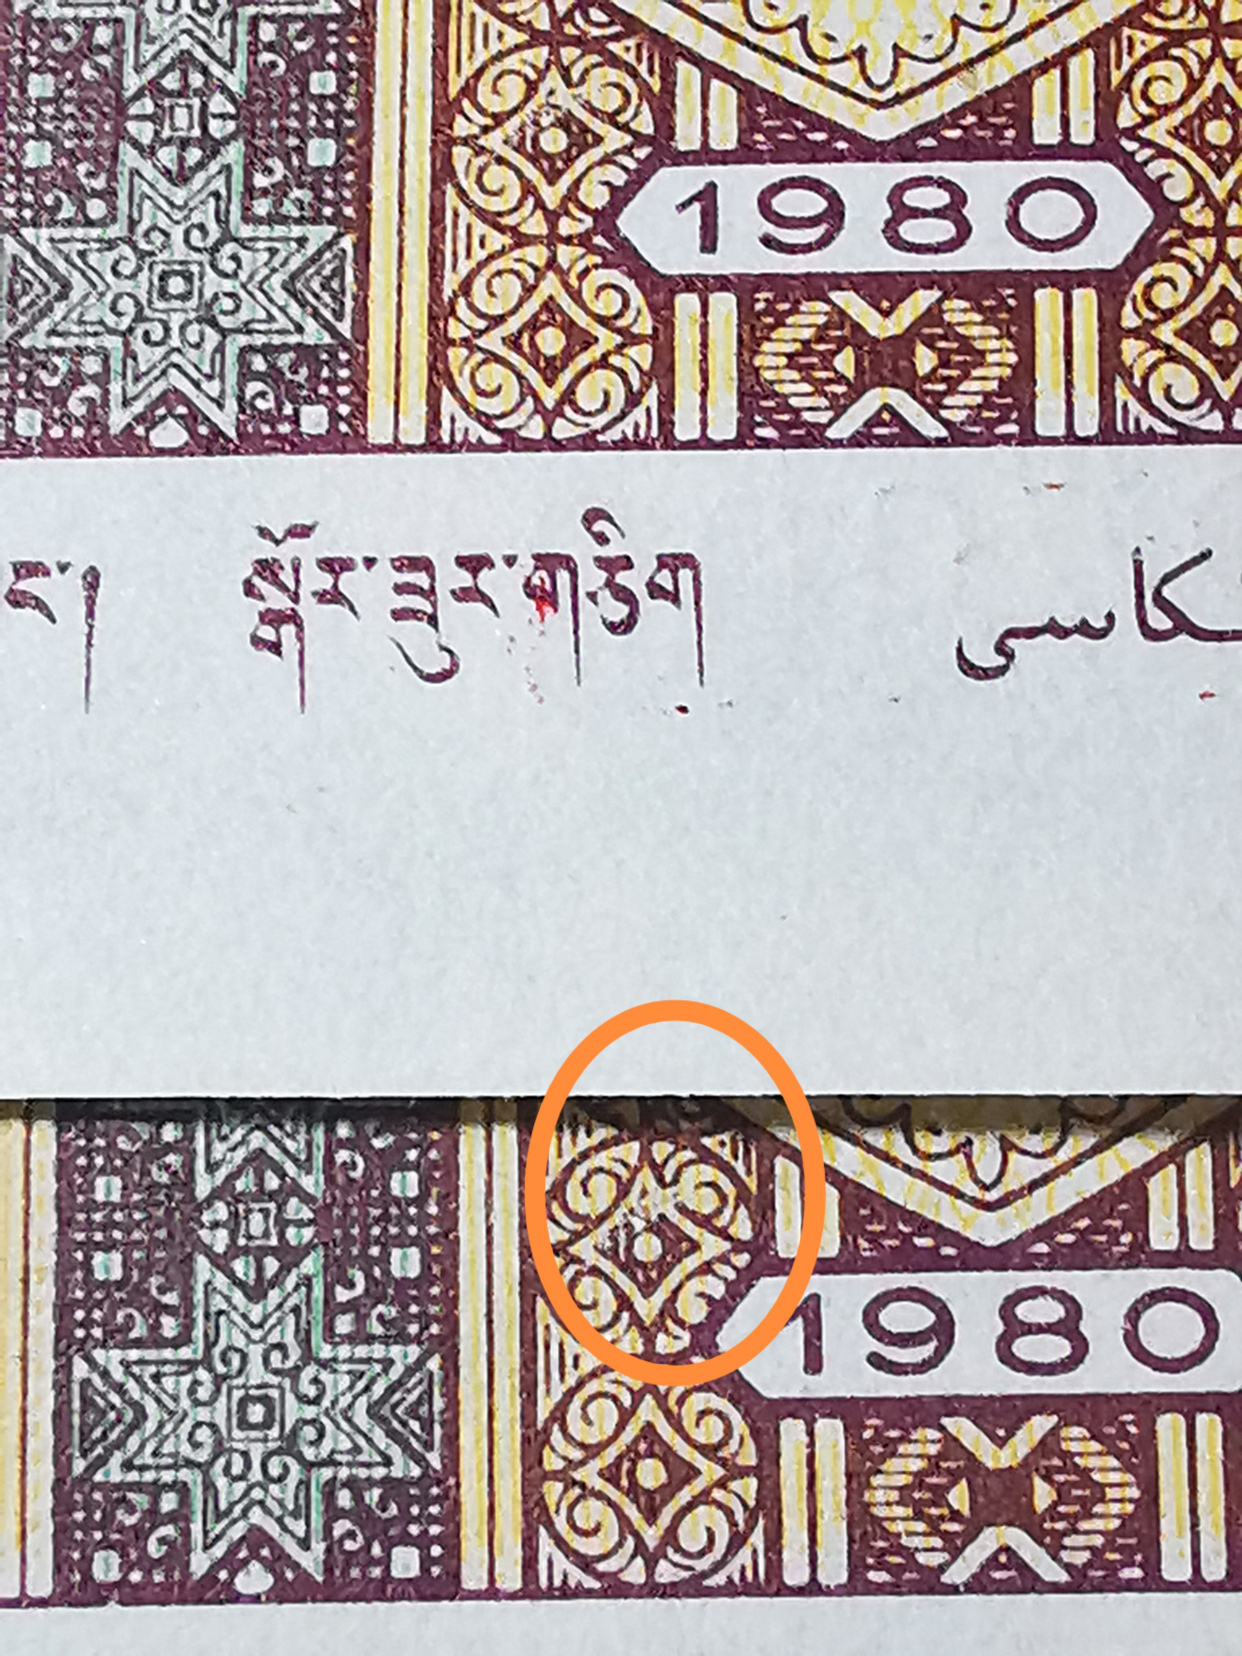 1980
ང་། སྒོར་ཟུར་གཅིག كاسى
1980